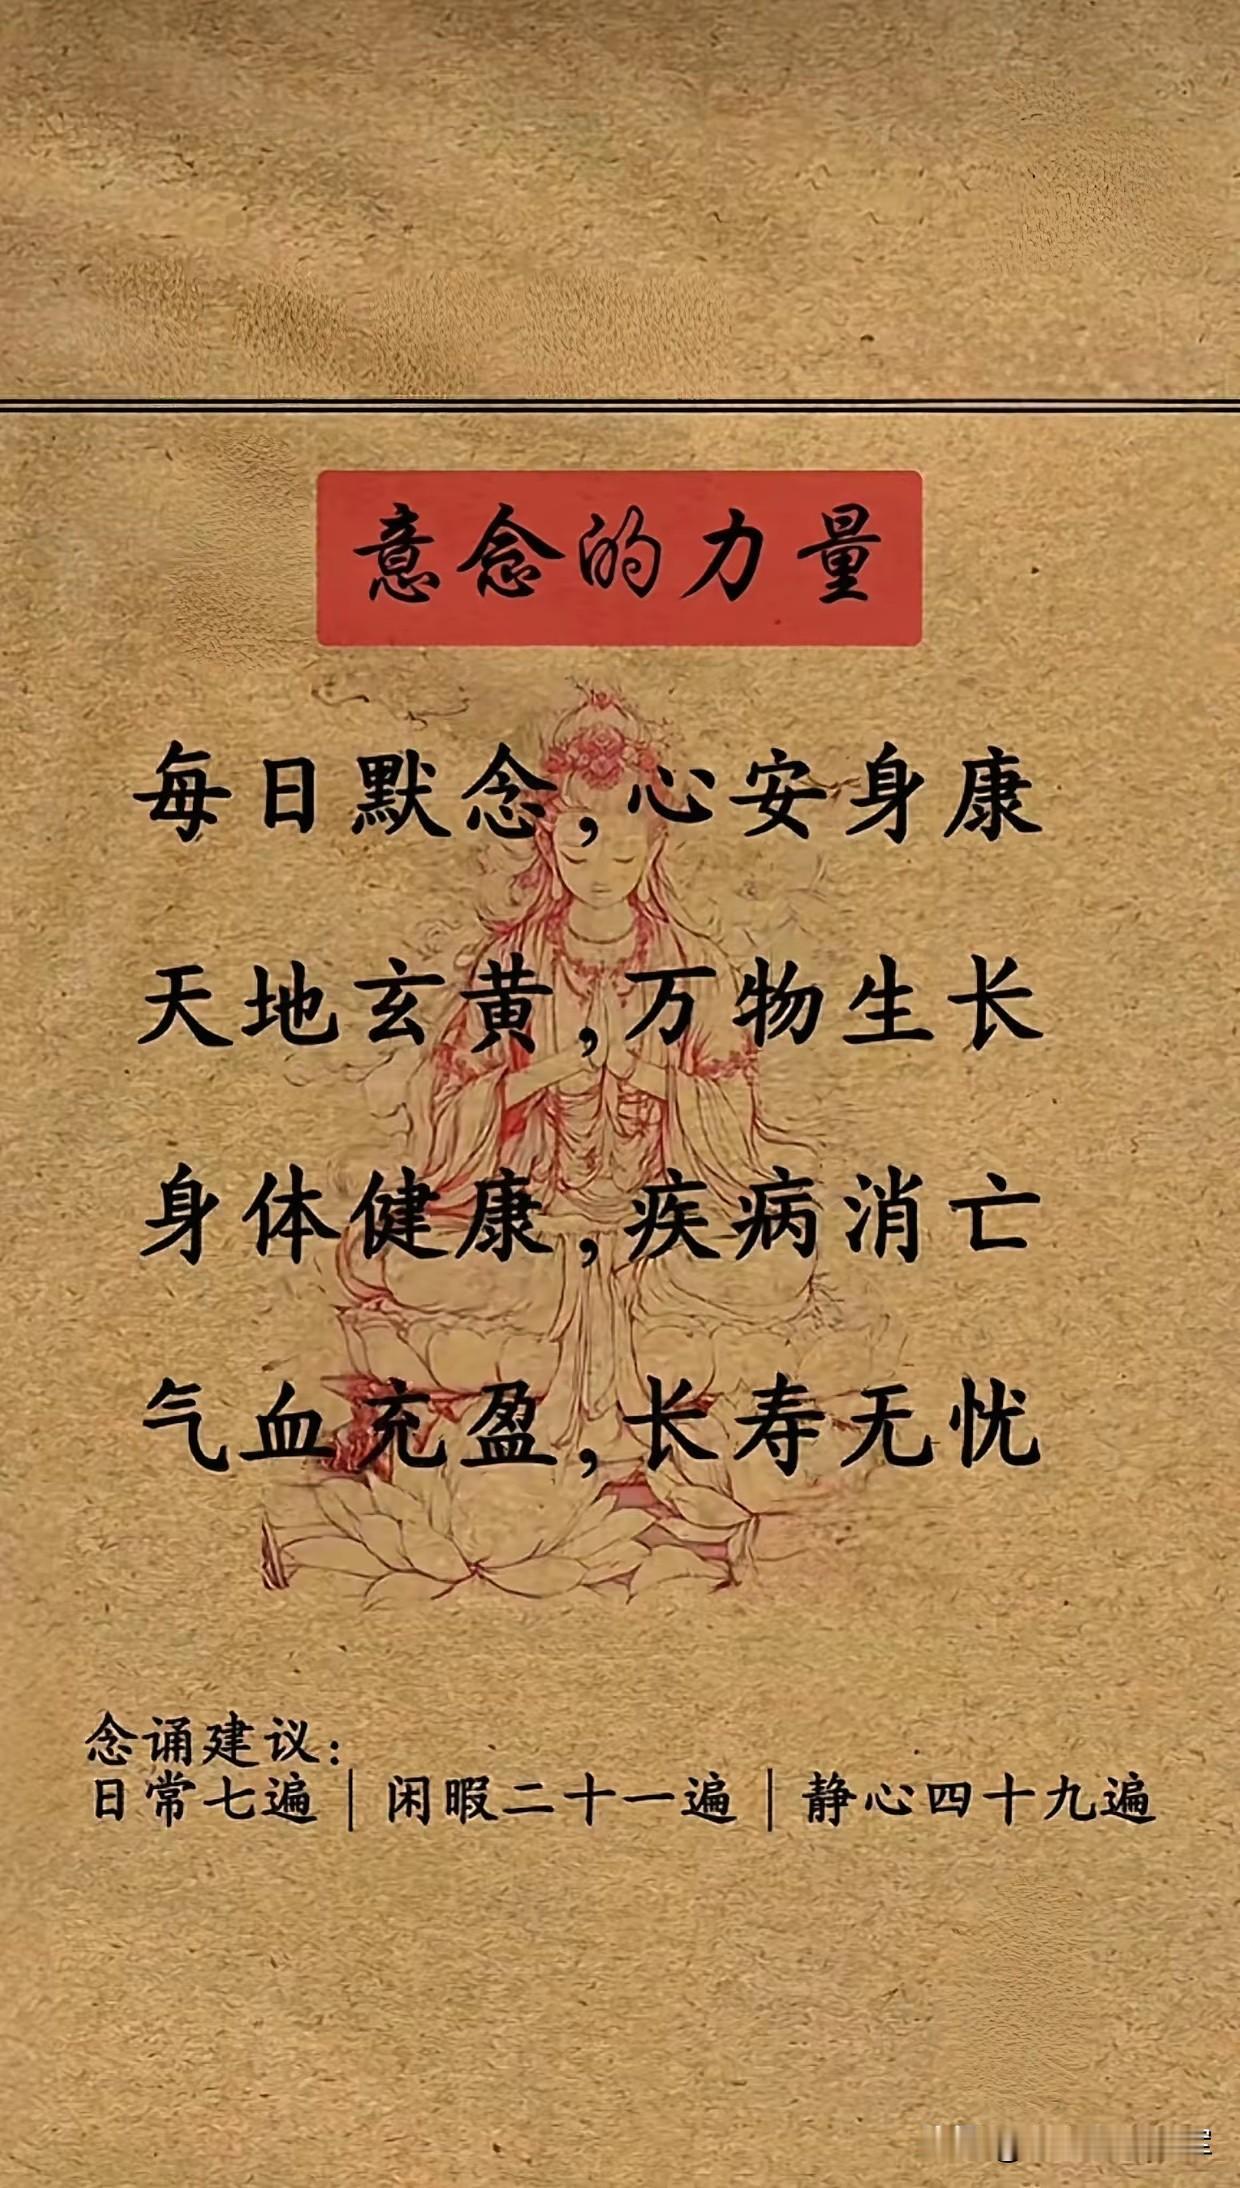 意念的力量
每日默念,心安身康
天地玄黄,万物生长
身体健康,疾病消亡
气血充盈,长寿无忧
念诵建议:
日常七遍|闲暇二十一遍|静心四十九遍